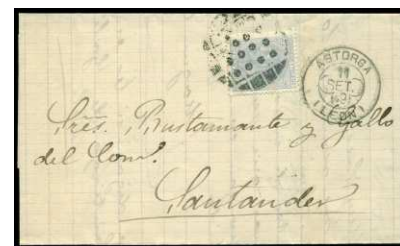 ASTORGA
11
SET.
(LEON)
Sres. Bustamante y Gallo
del Com.
Santander